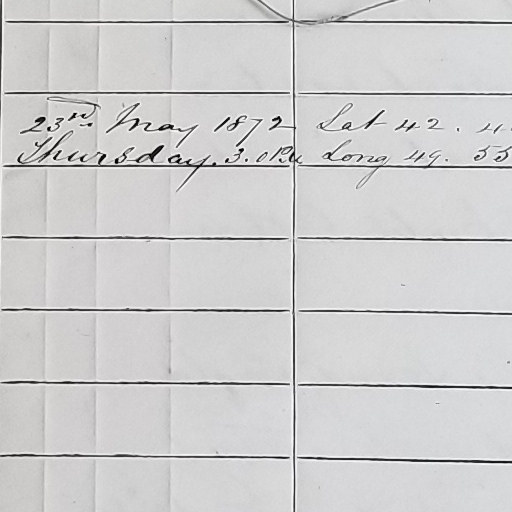 23rd May 1872 Lat 42. 4
Thursday. 3. 0 P.M Long 49. 55